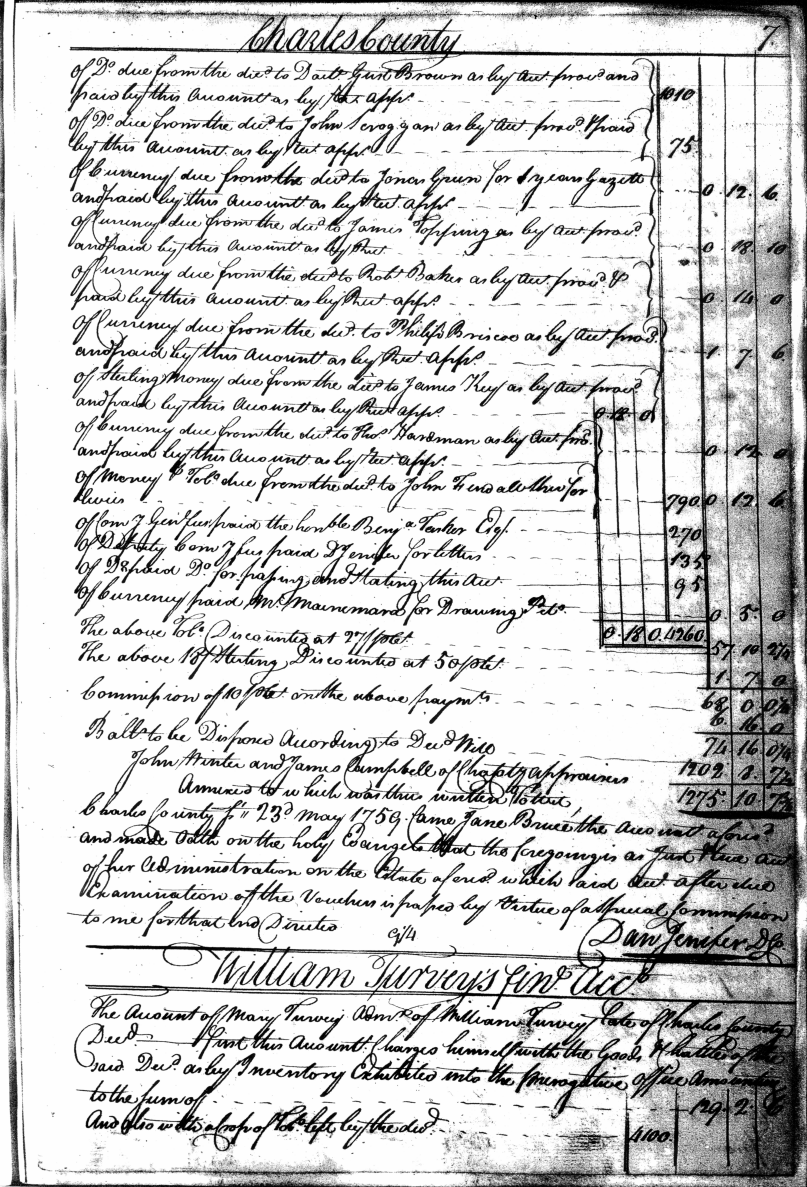 Charles County 7.
of Do. due from the decd. to Doctr. Gust. Brown as by Acct. provd and
paid by this Accountt as by Rect. appr. 1010
of Do. due from the decd. to John Scroggan as by Acct. provd. & paid
by this Accountt. as by Rect. appr. 75
of Currency due from the decd. to Jonas Green for 1 years Gazett
and paid by this Accountt as by Rect. appr. 0. 12. 6
of Currency due from the decd. to James Topping as by Acct. provd.
and paid by this Accountt as by Rect. 0. 18. 10
of Currency due from the decd. to Robt. Baker as by Acct. provd. &
paid by this Accountt as by Rect. appr. 0. 14. 0
of Currency due from the decd. to Philip Briscoe as by Acct. provd.
and paid by this Accountt as by Rect. appr. 1. 7. 6
of Sterling Money due from the decd. to James Key as by Acct. provd.
and paid by this Accountt as by Rect. appr. 0. 18. 0
of Currency due from the decd. to Tho. Hardman as by Acct. provd.
and paid by this Accountt as by Rect. appr. 0. 12. 0
of Money & Tobo. due from the decd. to John Fendall Sheriff for
790 0. 12. 6
of Com Genl fees paid the honble Benja. Tasker Esqr. 270
of Deputy Com fees paid D Jenifer for letters 135
of Do paid Do. for passing and Stating this Acct. 95
of Currency paid for Drawing Petn. 0. 5. 0
0. 18. 0. 4260
The above Tobo. Discounted at 27/ prCt. 57. 10. 2 1/4
The above 18/ Sterling Discounted at 50 prCt. 1. 7. 0
68. 0. 0 1/4
Commission of 10 prCt. on the above paymts. 6. 16. 0
74. 16. 0 1/4
Ballce. to be Disposed According to Decds Will 1202. 8.
John Winter and James Campbell of Chas. Cty. appraisers
1275. 10.
Annexed to which was thus written Totwit,
Charles County Ss. 23d May 1759 Came Jane Bruce the Accountt aforesd.
and made Oath on the holy Evangels that the foregoing is a Just & true Acct.
of her administration on the Estate aforesd. which said Acct. after due
Examination of the Vouchers is passed by Virtue of a Special Commission
to me for that End Directed
Dan Jenifer DCo
William Turvey's finl. Acct.
The Accountt of Mary Turvey Admx. of William Turvey Late of Charles County
Decd. first this Accountt. Charges himself with the Goods & Chattles of the
said Decd. as by Inventory Exhibited into the prerogative Office Amounting
to the sum of 129. 2. 6
And also with a Crop of Tobo. left by the decd. 4100